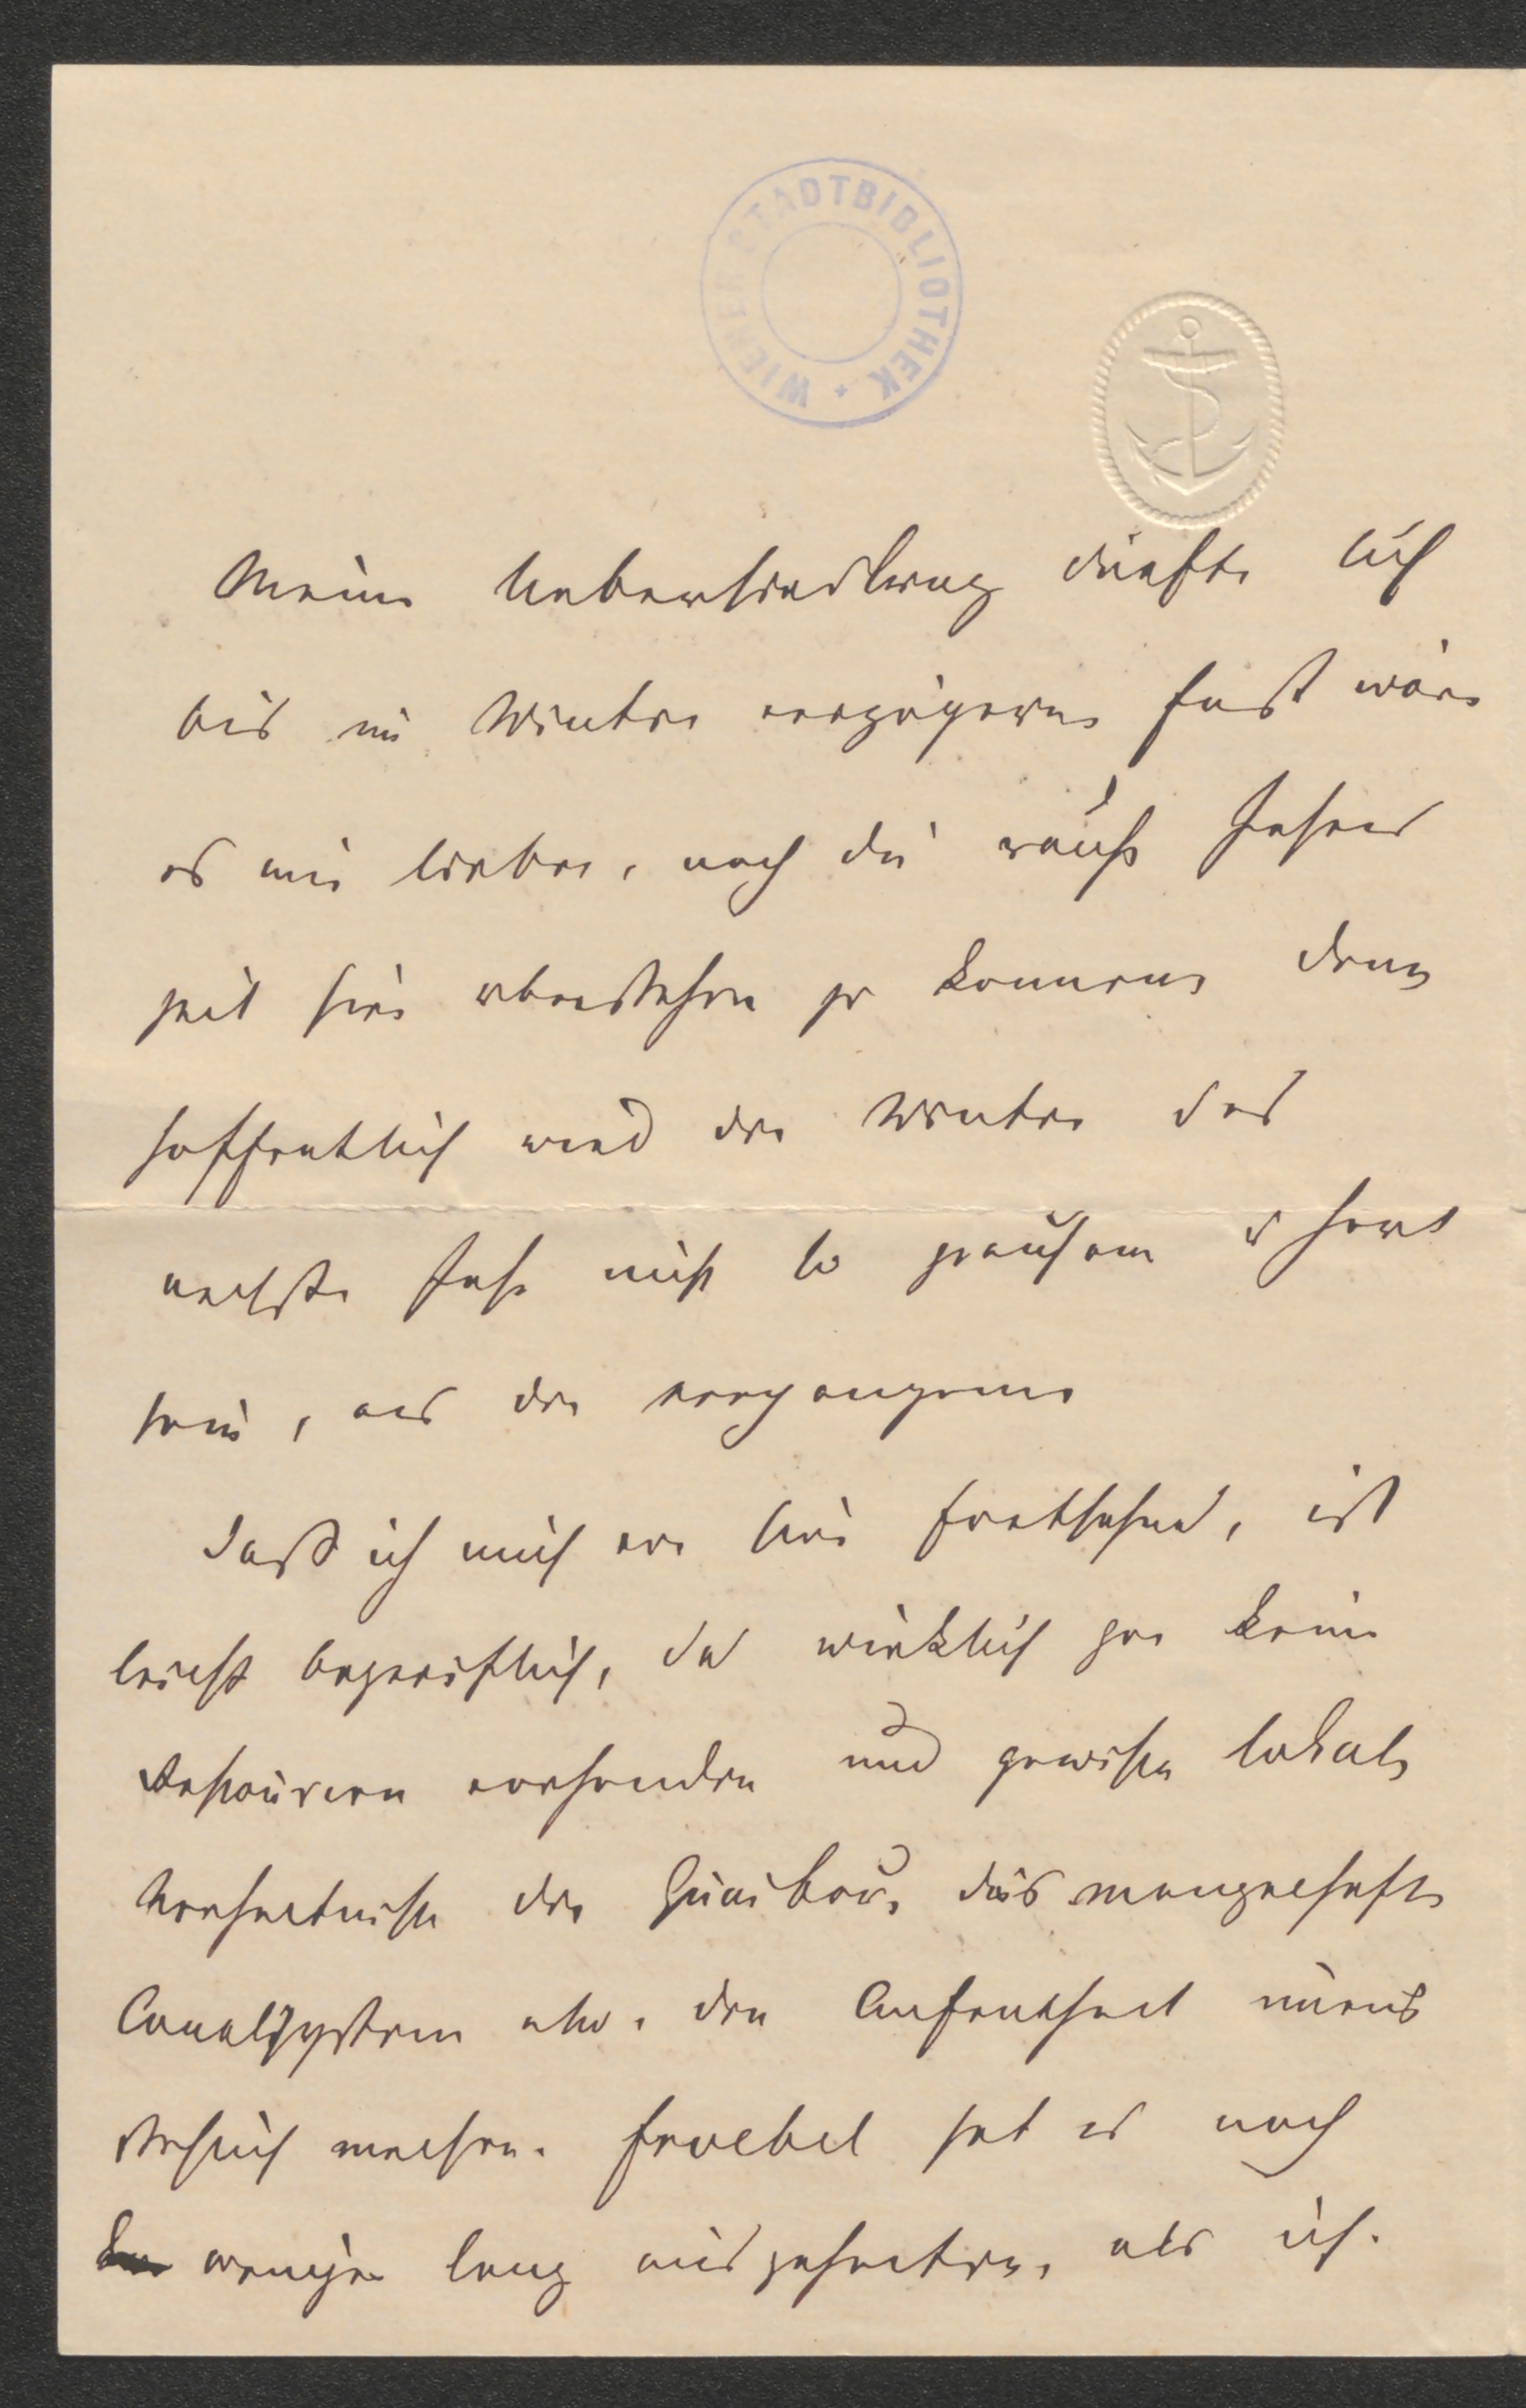 WIENER STADTBIBLIOTHEK
Meine Uebersiedlung dürfte sich
bis im Winter verzögern fast wäre
es mir lieber, noch die rauhe Jahres
zeit hier überstehen zu können denn
hoffentlich wird der Winter des
nächste Jahr nicht so grausam u hart
sein, als der vergangene
Daß ich mich von hier fortsehne, ist
leicht begreiflich, da wirklich gar keine
Ressourcen vorhanden und gewisse lokale
Verhältnisse der Quaibau, das mangelhafte
Canalsystem etc. den Aufenthalt
machen. Froebel hat es noch
weniger lang ausgehalten, als ich.